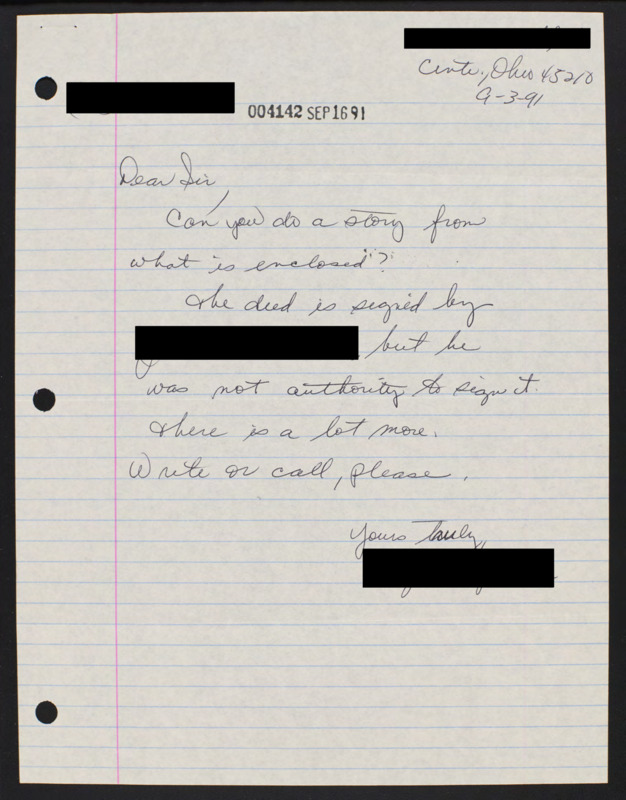 Cinti., Ohio 45210
9-3-91
004142 SEP 16 91
Dear Sir,
Can you do a story from
what is enclosed?
The deed is signed by
, but he
was not authority to sign it.
There is a lot more.
Write or call, please.
Yours truly,